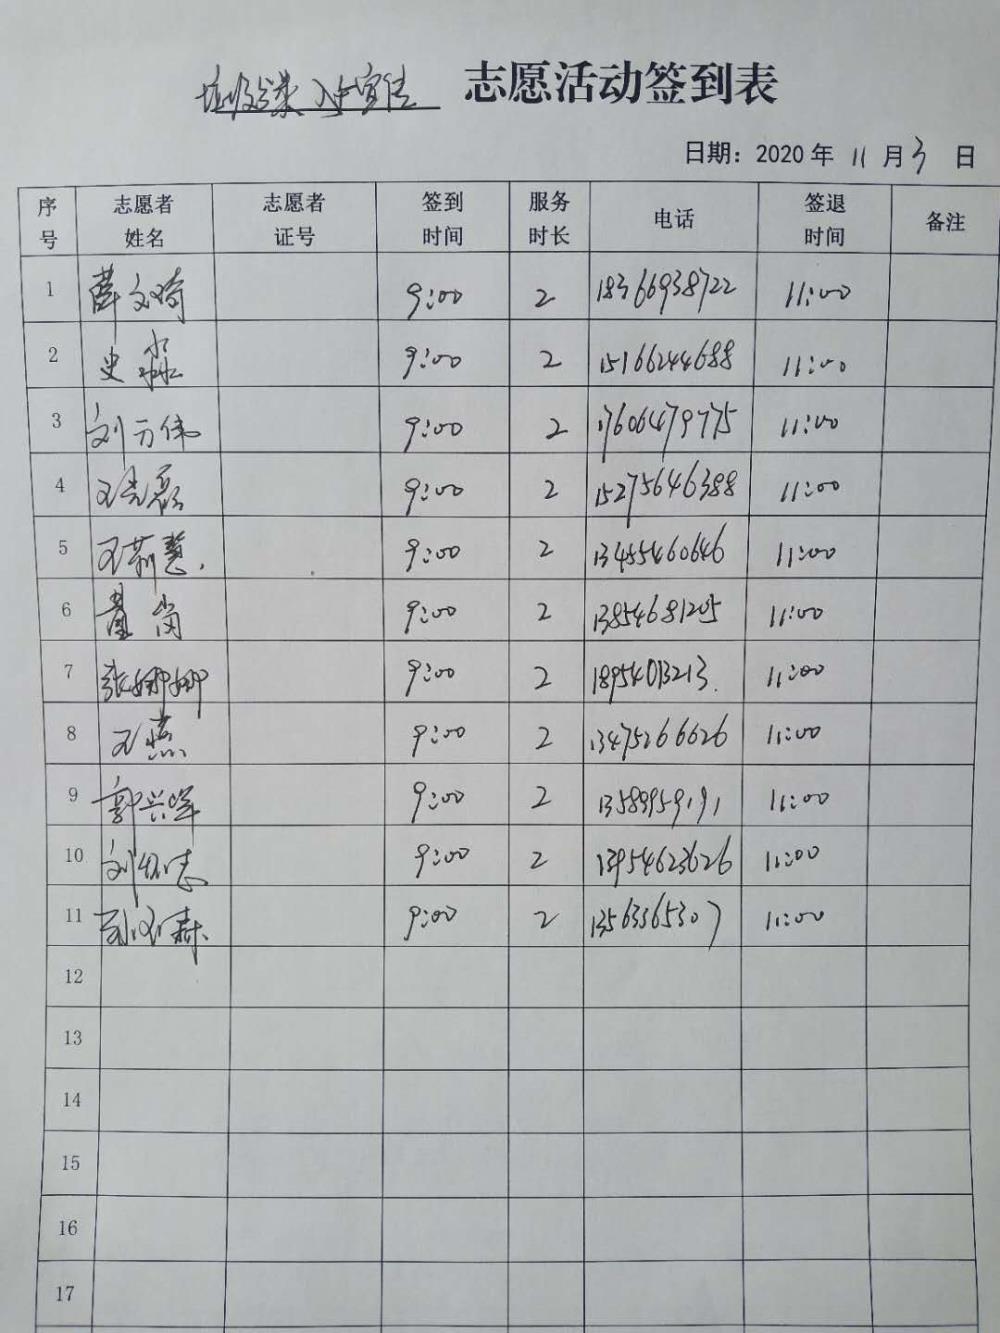 垃圾分类入户宣传 志愿活动签到表
日期：2020 年 11 月 3 日
序号 志愿者姓名 志愿者证号 签到时间 服务时长 电话 签退时间 备注
1 薛文琦 9:00 2 18366938722 11:00
2 史淼 9:00 2 15166244688 11:00
3 刘万伟 9:00 2 17606479775 11:00
4 9:00 2 15275646388 11:00
5 王莉慧 9:00 2 13455460646 11:00
6 董岗 9:00 2 13854681205 11:00
7 张娜娜 9:00 2 18954013213 11:00
8 王燕 9:00 2 13475266626 11:00
9 郭兴军 9:00 2 13589959191 11:00
10 9:00 2 13954623626 11:00
11 9:00 2 13563365307 11:00
12
13
14
15
16
17